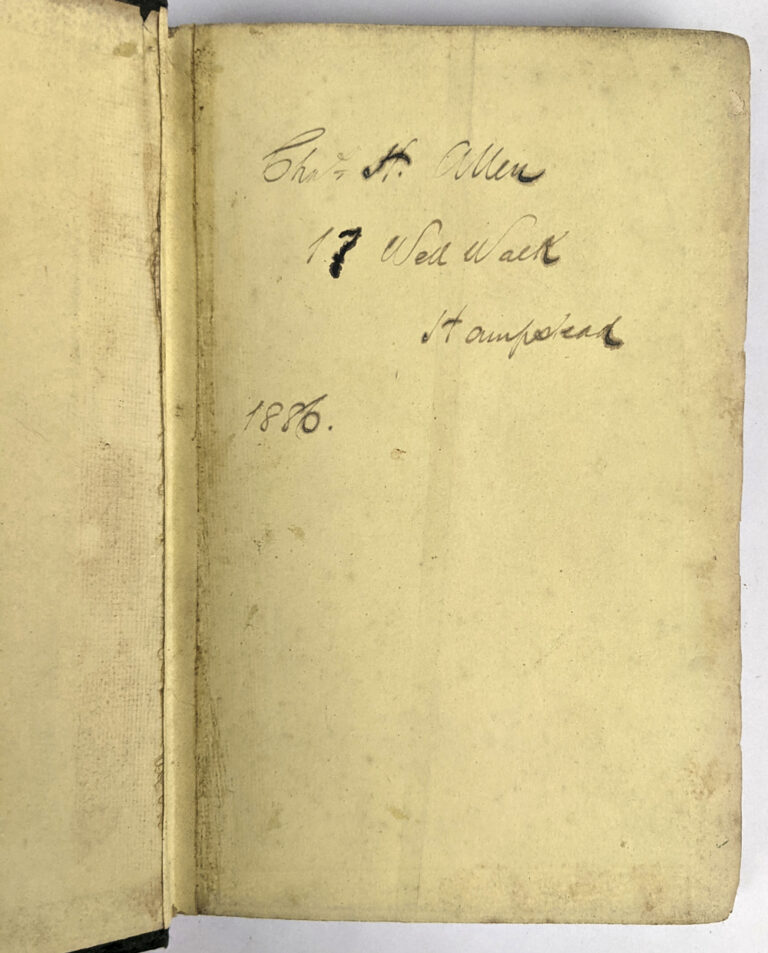 Chas. H. Allen
17 Well Walk
Hampstead
1886.